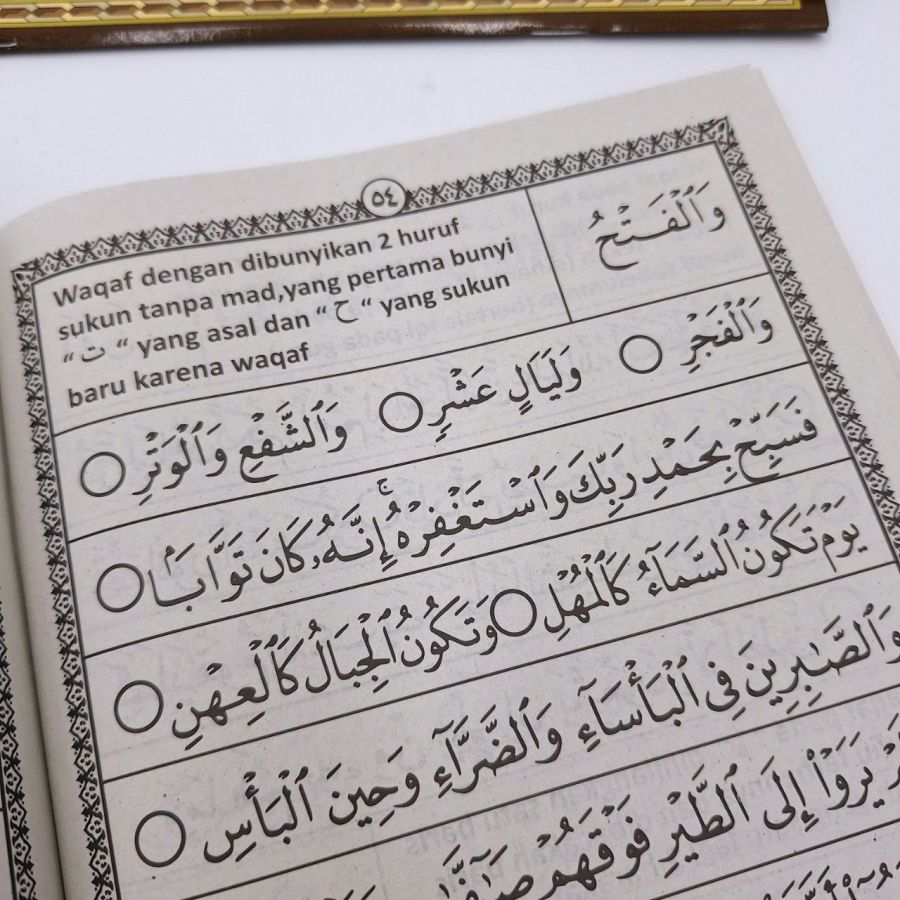 ٥٤
Waqaf dengan dibunyikan 2 huruf
sukun tanpa mad,yang pertama bunyi
“ ت “ yang asal dan “ ح “ yang sukun
baru karena waqaf
وَٱلْفَتْحُ
وَٱلْفَجْرِ ۝ وَلَيَالٍ عَشْرٍ ۝ وَٱلشَّفْعِ وَٱلْوَتْرِ ۝
فَسَبِّحْ بِحَمْدِ رَبِّكَ وَٱسْتَغْفِرْهُ ۚ إِنَّهُۥ كَانَ تَوَّابًۢا ۝
يَوْمَ تَكُونُ ٱلسَّمَآءُ كَٱلْمُهْلِ ۝ وَتَكُونُ ٱلْجِبَالُ كَٱلْعِهْنِ ۝
وَٱلصَّٰبِرِينَ فِى ٱلْبَأْسَآءِ وَٱلضَّرَّآءِ وَحِينَ ٱلْبَأْسِ ۝
يَرَوْا۟ إِلَى ٱلطَّيْرِ فَوْقَهُمْ